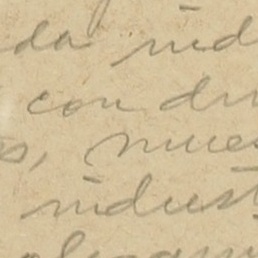 da ind
con du
s, nues
indust